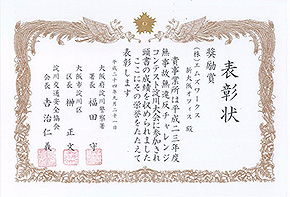 表彰状
奨励賞
(株)エムズワークス
新大阪オフィス 殿
貴事業所は平成二三年度
無事故無違反チャレンジ
コンテスト淀川大会に参加され
頭書の成績を収められました
ここにその栄誉をたたえて
表彰します
平成二十四年九月二十一日
大阪府淀川警察署
署長 福田 守
大阪市淀川区
区長 榊 正文
淀川交通安全協会
会長 吉治 仁義